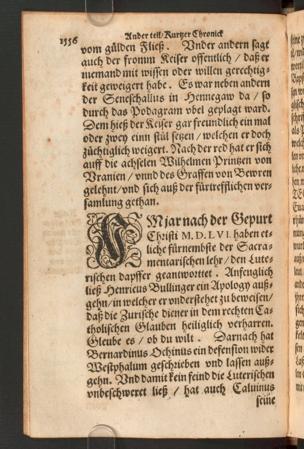 1556
Ander teil/Kurtzer Chronick
vom gülden Fließ. Vnder andern sagt
auch der fromm Keiser offentlich / daß er
niemand mit wissen oder willen gerechtig-
keit geweigert habe. Es war neben andern
der Seneschallus in Hennegaw da / so
durch das Podagram vbel geplagt ward.
Dem hieß der Keiser gar freundlich ein mal
oder zwey einn stül setzen / welchen er doch
züchtiglich weigert. Nach der red hat er sich
auff die achselen Wilhelmen Printzen von
Vranien / vnnd des Graffen von Bewren
gelehnt / vnd sich auß der fürtrefflichen ver-
samlung gethan.
IM jar nach der Gepurt
Christi M. D. LVI. haben et-
liche fürnembste der Sacra-
mentarischen lehr / den Lute-
rischen dapffer geantwortet. Anfenglich
ließ Henricus Bullinger ein Apology auß-
gehn / in welcher er vnderstehet zu beweisen /
daß die Zurische diener in dem rechten Ca-
tholischen Glauben heiliglich verharren.
Gleube es / ob du wilt. Darnach hat
Bernardinus Ochinus ein defension wider
Westphalum geschrieben vnd lassen auß-
gehn. Vnd damit kein feind die Luterischen
vnbeschweret ließ / hat auch Caluinus
seine